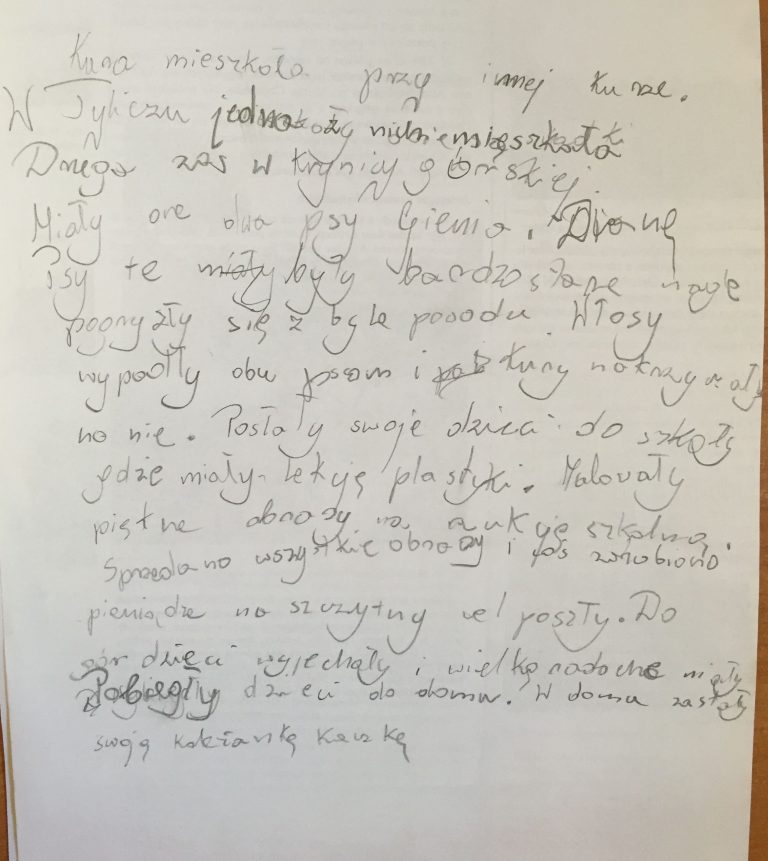 Kura mieszkała przy innej kurze.
W Tyliczu jedna mieszkała
Druga zaś w Krynicy górskiej.
Miały one dwa psy Gienia, Dianę
Psy te miały były bardzo słabe
pogryzły się z byle powodu. Włosy
wypadły obu psom i kury nakrzyczały
na nie. Posłały swoje dzieci do szkoły
gdzie miały lekcję plastyki. Malowały
piękne obrazy na aukcję szkolną.
Sprzedano wszystkie obrazy i zarobiono
pieniądze na szczytny cel poszły. Do
gór dzieci wyjechały i wielką radochę miały
Pobiegły dzieci do domu. W domu zastały
swoją koleżankę kaczkę